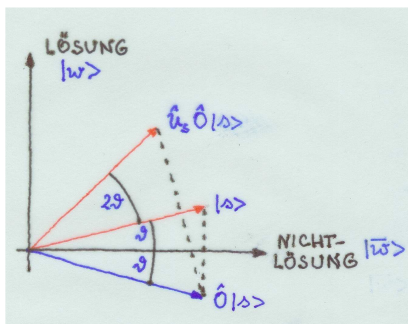 LÖSUNG
|w>
Û_s Ô|s>
2ϑ
|s>
ϑ
ϑ
NICHT-
LÖSUNG |w̄>
Ô|s>